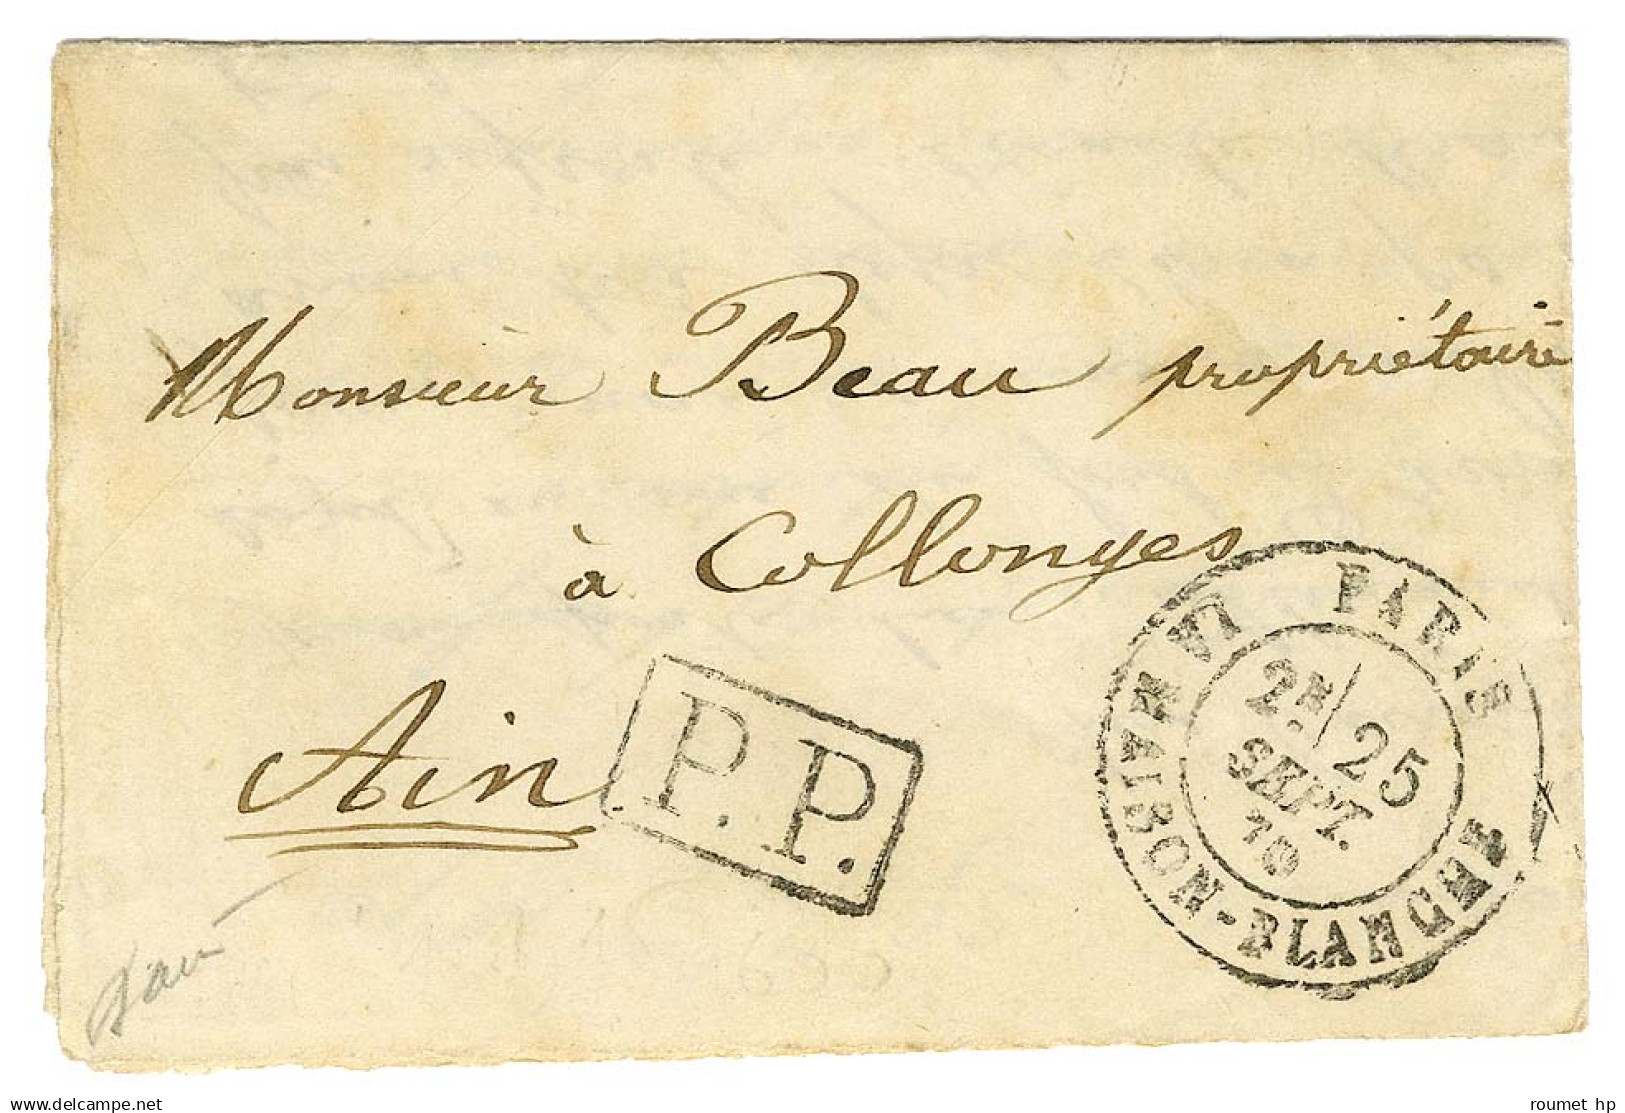 Monsieur Beau propriétaire
à Collonges
Ain
P.P.
PARIS
LA MAISON-BLANCHE
2E/ 25
SEPT.
70
roumet hp